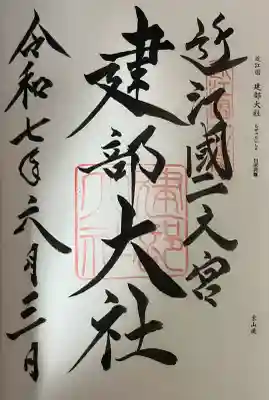 近江國一之宮
建部大社
令和七年六月三日
近江国 建部大社